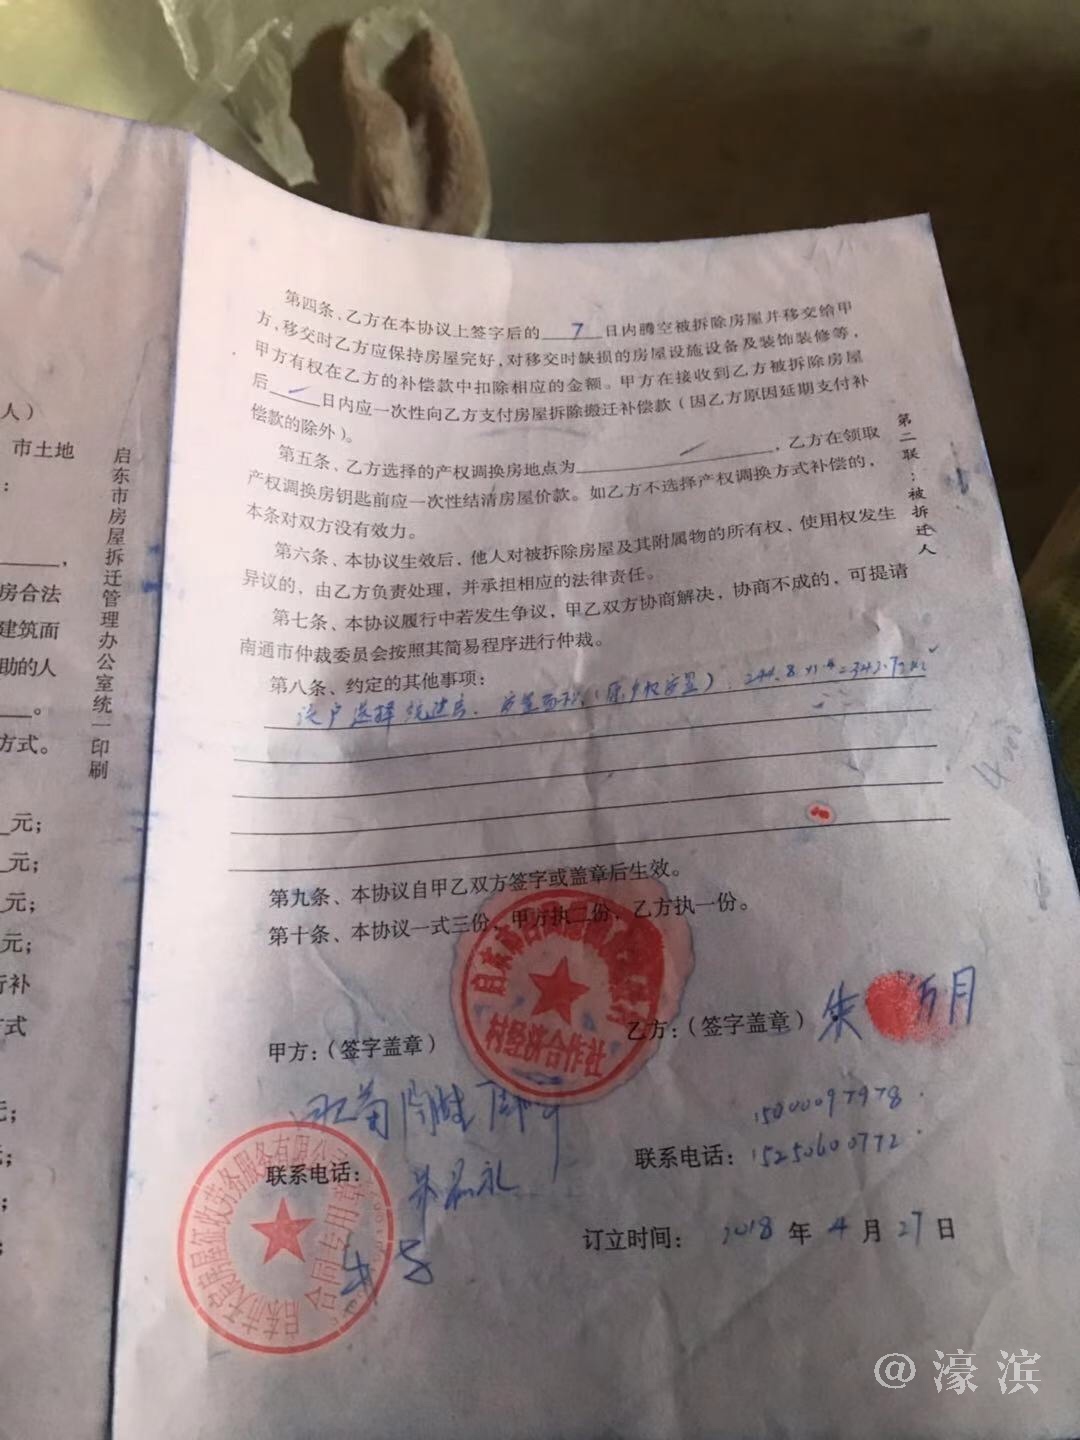 人）
市土地
：
房合法
建筑面
助的人
。
方式。
元；
元；
元；
元；
行补
方式
元；
元；
启东市房屋拆迁管理办公室统一印刷
第四条、乙方在本协议上签字后的 7 日内腾空被拆除房屋并移交给甲
方，移交时乙方应保持房屋完好，对移交时缺损的房屋设施设备及装饰装修等，
甲方有权在乙方的补偿款中扣除相应的金额。甲方在接收到乙方被拆除房屋
后____日内应一次性向乙方支付房屋拆除搬迁补偿款（因乙方原因延期支付补
偿款的除外）。
第五条、乙方选择的产权调换房地点为________，乙方在领取
产权调换房钥匙前应一次性结清房屋价款。如乙方不选择产权调换方式补偿的，
本条对双方没有效力。
第六条、本协议生效后，他人对被拆除房屋及其附属物的所有权、使用权发生
异议的，由乙方负责处理，并承担相应的法律责任。
第七条、本协议履行中若发生争议，甲乙双方协商解决，协商不成的，可提请
南通市仲裁委员会按照其简易程序进行仲裁。
第八条、约定的其他事项：
该户选择统建房、安置面积（原产权安置）：244.8×1.4=342.72㎡
第九条、本协议自甲乙双方签字或盖章后生效。
第十条、本协议一式三份，甲方执二份，乙方执一份。
第二联：被拆迁人
启东市
村经济合作社
甲方：（签字盖章）
乙方：（签字盖章） 朱 月
15000097978
联系电话：
联系电话：15250600772
订立时间： 2018 年 4 月 27 日
房屋征收劳务服务有限公司
合同专用章
@濠滨